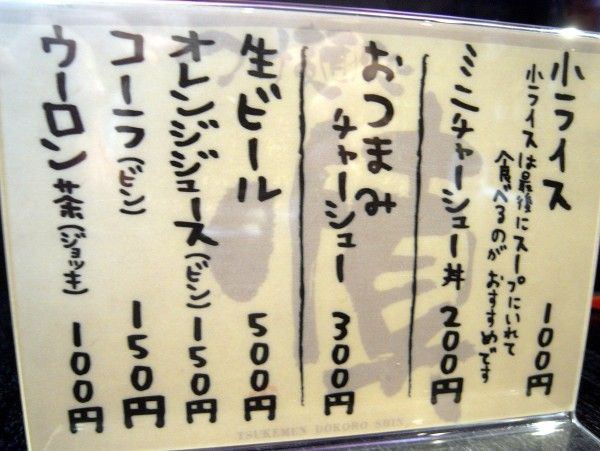 小ライス 100円
小ライスは最後にスープにいれて
食べるのが おすすめです
ミニチャーシュー丼 200円
おつまみ
チャーシュー 300円
生ビール 500円
オレンジジュース(ビン) 150円
コーラ(ビン) 150円
ウーロン茶(ジョッキ) 100円
TSUKEMEN DOKORO SHIN